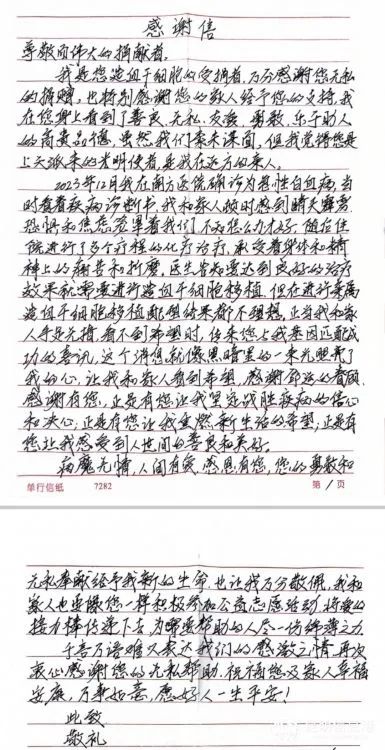 感谢信
尊敬而伟大的捐献者:
我是您造血干细胞的受捐者,万分感谢您无私
的捐赠,也特别感谢您的家人给予您的支持,我
在您身上看到了善良、无私、友爱、勇敢、乐于助人
的高贵品德,虽然我们素未谋面,但我觉得您是
上天派来的光明使者,是我在远方的亲人。
2023年12月我在南方医院确诊为急性白血病,当
时查看疾病诊断书,我和家人顿时感到晴天霹雳。
恐惧和焦虑笼罩着我们不知怎么办才好,随后住
院进行了多个疗程的化疗治疗,承受着身体和精
神上的痛苦和折磨,医生告知要达到良好的治疗
效果就需要进行造血干细胞移植,但在进行亲属
造血干细胞移植配型结果都不理想,正当我和家
人手足无措,看不到希望时,传来您与我基因匹配成
功的喜讯,这个消息就像黑暗里的一束光照亮了
我的心,让我和家人看到希望,感谢命运的眷顾,
感谢有您,正是有您让我坚定战胜疾病的信心
和决心;正是有您让我重燃新生活的希望;正是有
您让我感受到人世间的善良和美好。
病魔无情,人间有爱,感恩有您,您的勇敢和
单行信纸 7282 第1页
无私奉献给予我新的生命,也让我万分敬佩,我和
家人也要像您一样积极参加公益志愿活动,将爱的
接力棒传递下去,为需要帮助的人尽一份绵薄之力。
千言万语难以表达我们的感激之情,再次
衷心感谢您的无私帮助,祝福您及家人幸福
安康,万事如意,愿好人一生平安!
此致
敬礼